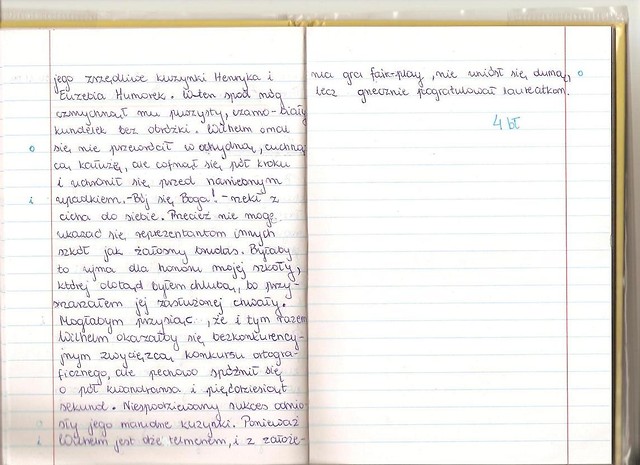 jego zrzędliwe kuzynki Henryka i
Euzebia Humorek. Wtem spod nóg
czmychnął mu puszysty, czarno-biały
kundelek bez obróżki. Wilhelm omal
się nie przewrócił w ochydną, cuchną-
cą kałużę, ale cofnął się pół kroku
i uchronił się przed haniebnym
upadkiem. -Bój się Boga! - rzekł z
cicha do siebie. Przecież nie mogę
ukazać się reprezentantom innych
szkół jak żałosny brudas. Byłaby
to ujma dla honoru mojej szkoły,
której dotąd byłem chlubą, bo przy-
sparzałem jej zasłużonej chwały.
Mogłabym przysiąc, że i tym razem
Wilhelm okazałby się bezkonkurency-
jnym zwycięzcą konkursu ortogra-
ficznego, ale pechowo spóźnił się
o pół kwandransa i pięćdziesiąt
sekund. Niespodziewany sukces odnio-
sły jego marudne kuzynki. Ponieważ
Wilhelm jest dżetelmenem, i z założe-
nia gra fair-play, nie uniósł się dumą,
lecz grzecznie pogratulował laureatkom.
4 bł